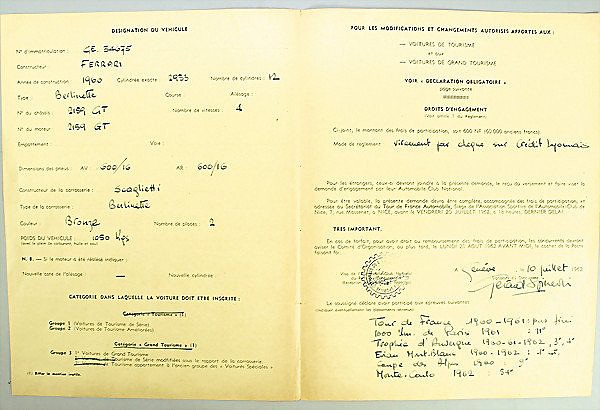 DESIGNATION DU VEHICULE
N° d'immatriculation : GE. 34075
Constructeur : FERRARI
Année de construction : 1960 Cylindrée exacte : 2953 Nombre de cylindres : 12
Type : Berlinette Course : Alésage :
N° du châssis : 2159 GT Nombre de vitesses : 4
N° du moteur 2159 GT
Empattement : Voie :
Dimensions des pneus : AV : 600/16 AR : 600/16
Constructeur de la carrosserie : Scaglietti
Type de la carrosserie : Berlinette
Couleur : Bronze Nombre de places : 2
POIDS DU VEHICULE : 1050 Kgs
(avec le plein de carburant, huile et eau)
N. B. — Si le moteur a été réalésé indiquer :
Nouvelle cote de l'alésage : — Nouvelle cylindrée :
CATEGORIE DANS LAQUELLE LA VOITURE DOIT ETRE INSCRITE :
Catégorie « Tourisme » (1)
Groupe 1 (Voitures de Tourisme de Série)
Groupe 2 (Voitures de Tourisme Améliorées)
Catégorie « Grand Tourisme » (1)
Groupe 3 1° Voitures de Grand Tourisme
de Tourisme de Série modifiées sous rapport de la carrosserie
de Tourisme appartenant à l'ancien groupe des « Voitures Spéciales »
(1) Biffer la mention inutile.
POUR LES MODIFICATIONS ET CHANGEMENTS AUTORISES APPORTES AUX :
— VOITURES DE TOURISME
et aux
— VOITURES DE GRAND TOURISME
VOIR « DECLARATION OBLIGATOIRE »
page suivante
DROITS D'ENGAGEMENT
(Voir article 7 du Règlement)
Ci-joint, le montant des frais de participation, soit 600 NF (60.000 anciens francs).
Mode de règlement : virement par cheque sur Crédit Lyonnais
Pour les étrangers, ceux-ci devront joindre à la présente demande, le reçu du versement et faire viser la
demande d'engagement par leur Automobile Club National.
Pour être valable, la présente demande devra être complète, accompagnée des frais de participation, et
adressée au Secrétariat du Tour de France Automobile, Siège de l'Association Sportive de l'Automobile Club de
Nice, 7, rue Massenet, à NICE, avant le VENDREDI 20 JUILLET 1962, à 18 heures, DERNIER DELAI.
TRES IMPORTANT.
En cas de forfait, pour avoir droit au remboursement des frais de participation, les concurrents devront
aviser le Comité d'Organisation, au plus tard, le LUNDI 27 AOUT 1962 AVANT MIDI, le cachet de la Poste
faisant foi.
A Genève, le 10 juillet 1962
Le soussigné déclare avoir participé aux épreuves suivantes :
Tour de France 1960-1961 : pas fini
1000 km. de Paris 1961 : 11°
Trophée d'Auvergne 1960-61-1962 ; 3°, 4°
Coupe des Alpes 1960 : 9°
Monte-Carlo 1962 : 54°